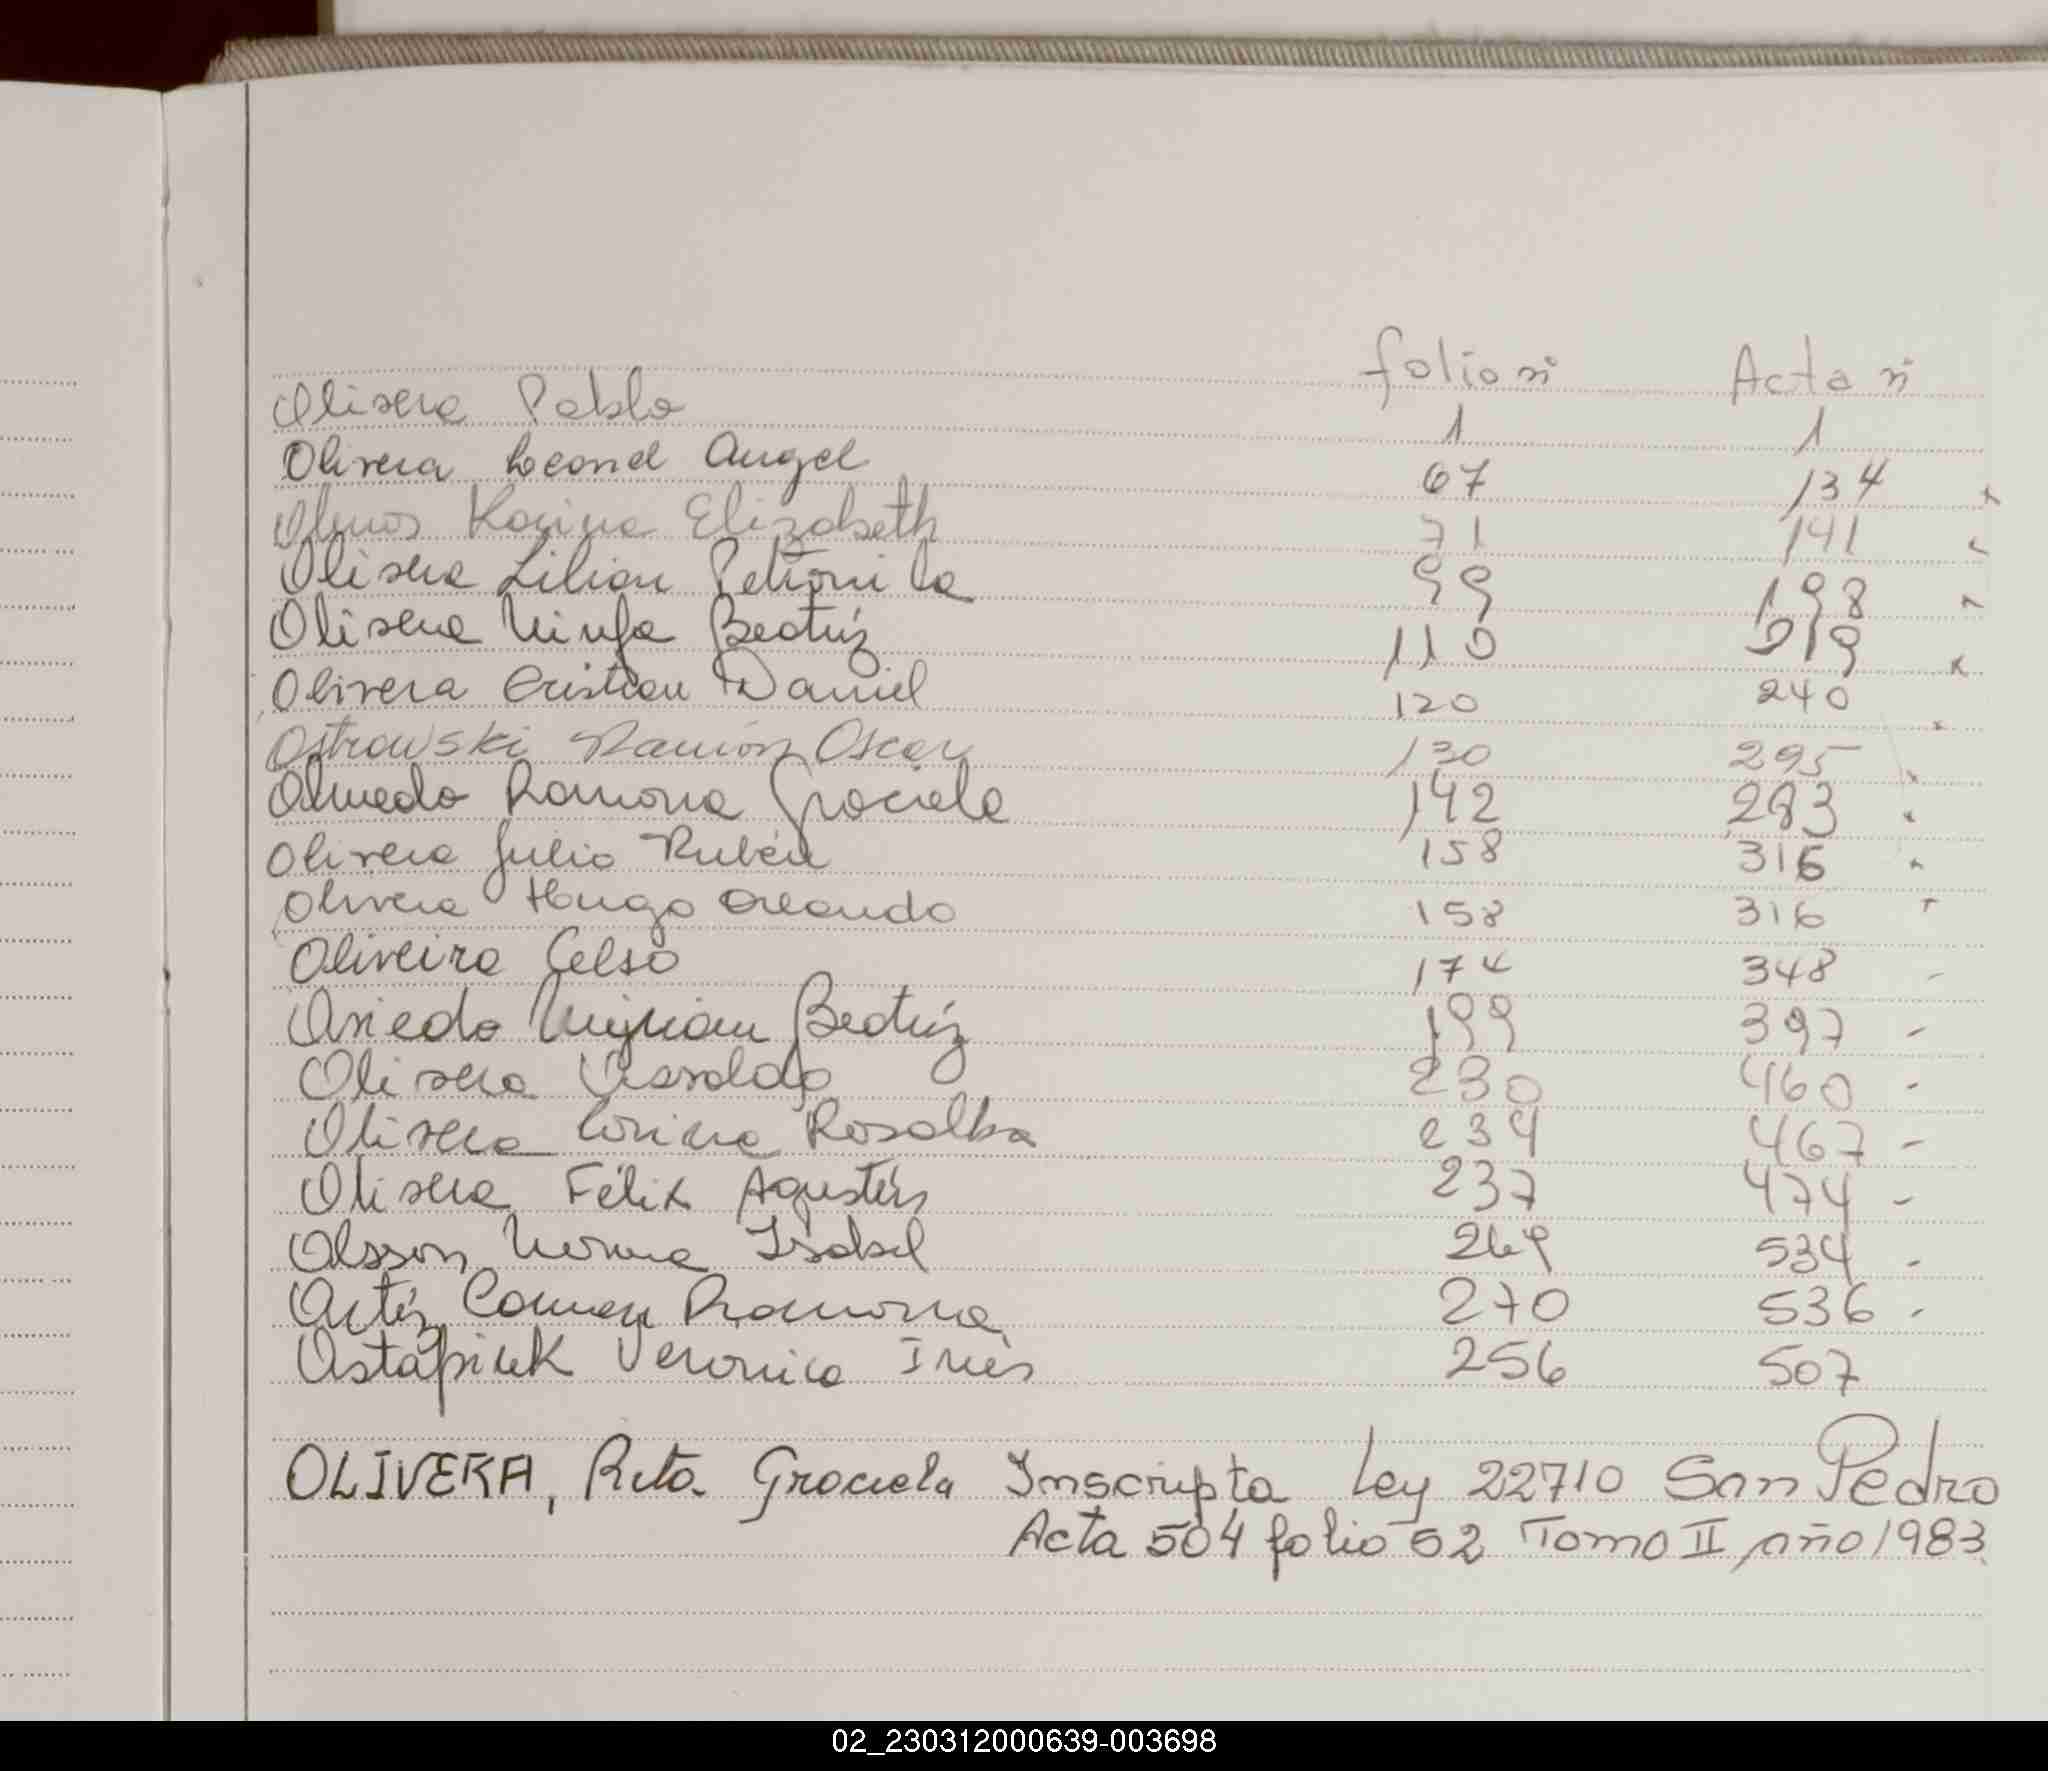 folio nº Acta nº
Olivera Pablo 1 1
Olivera Leonel Angel 67 134
Olmos Karina Elizabeth 71 141
Olivera Lilian Petronila 99 198
Olivera Ninfa Beatriz 110 219
Olivera Cristian Daniel 120 240
Ostrowski Ramón Oscar 130 295
Olmedo Ramona Graciela 142 283
Olivera Julio Rubén 158 316
Olivera Hugo Orlando 158 316
Oliveira Celso 174 348
Oviedo Miriam Beatriz 199 397
Olivera 230 460
Olivera Corina Rosalba 234 467
Olivera Félix Agustín 237 474
Olsson Norma Isabel 269 534
Ortíz Carmen Ramona 270 536
Ostapiuk Veronica Inés 256 507
OLIVERA, Rita Graciela Inscripta Ley 22710 San Pedro
Acta 504 folio 52 Tomo II año 1983
02_230312000639-003698